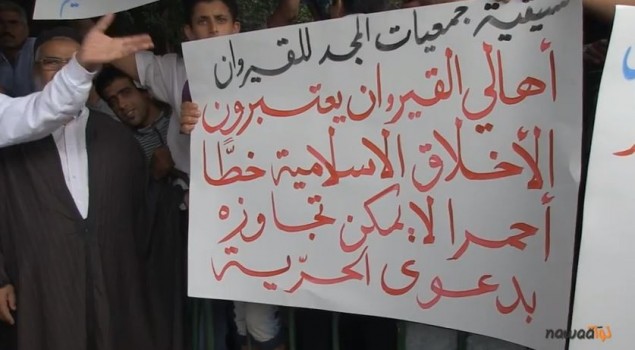 تنسيقية جمعيات المجد للقيروان
أهالي القيروان يعتبرون
الأخلاق الاسلامية خطًّا
أحمرا لا يمكن تجاوزه
بدعوى الحرّية
nawaat نواة